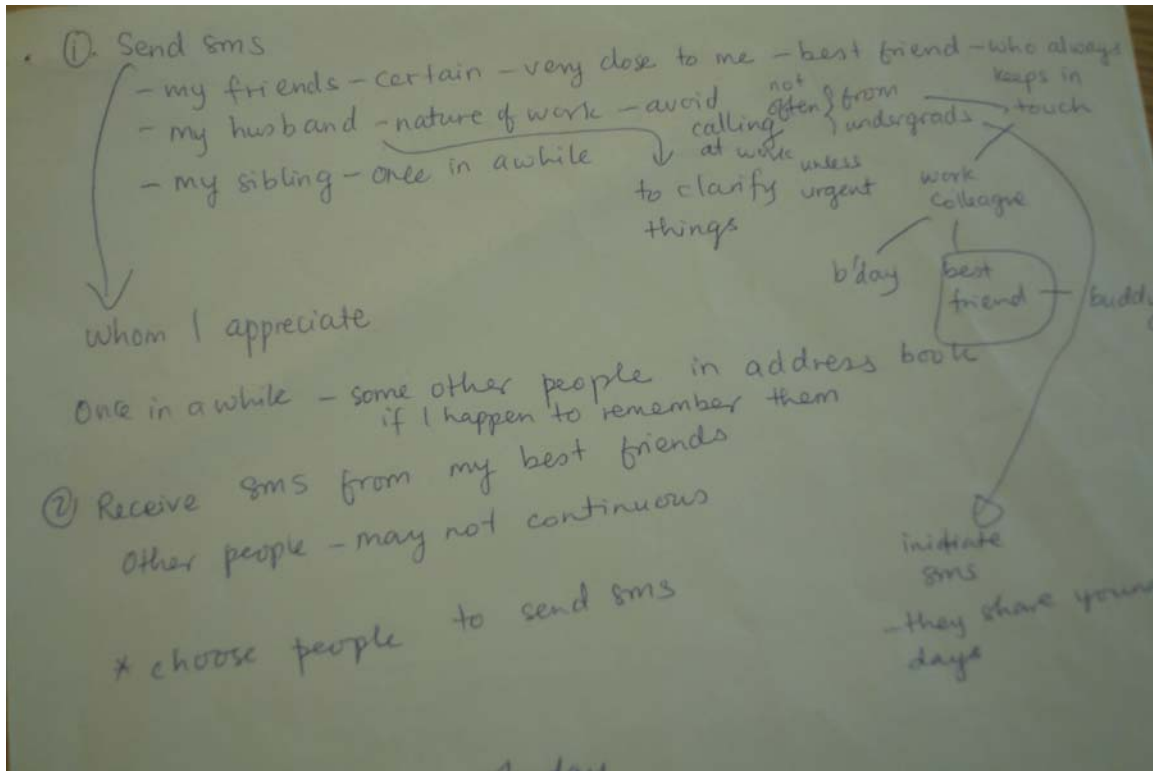 ① Send sms
- my friends - certain - very close to me - best friend - who always
keeps in
touch
- my husband - nature of work - avoid
calling
at work
unless
urgent
not
often } from
undergrads
to clarify
things
- my sibling - once in awhile
work
colleague
b'day
best
friend
buddy
whom I appreciate
Once in a while - some other people in address book
if I happen to remember them
② Receive sms from my best friends
Other people - may not continuous
inidiate
sms
- they share young
days
* choose people to send sms
day